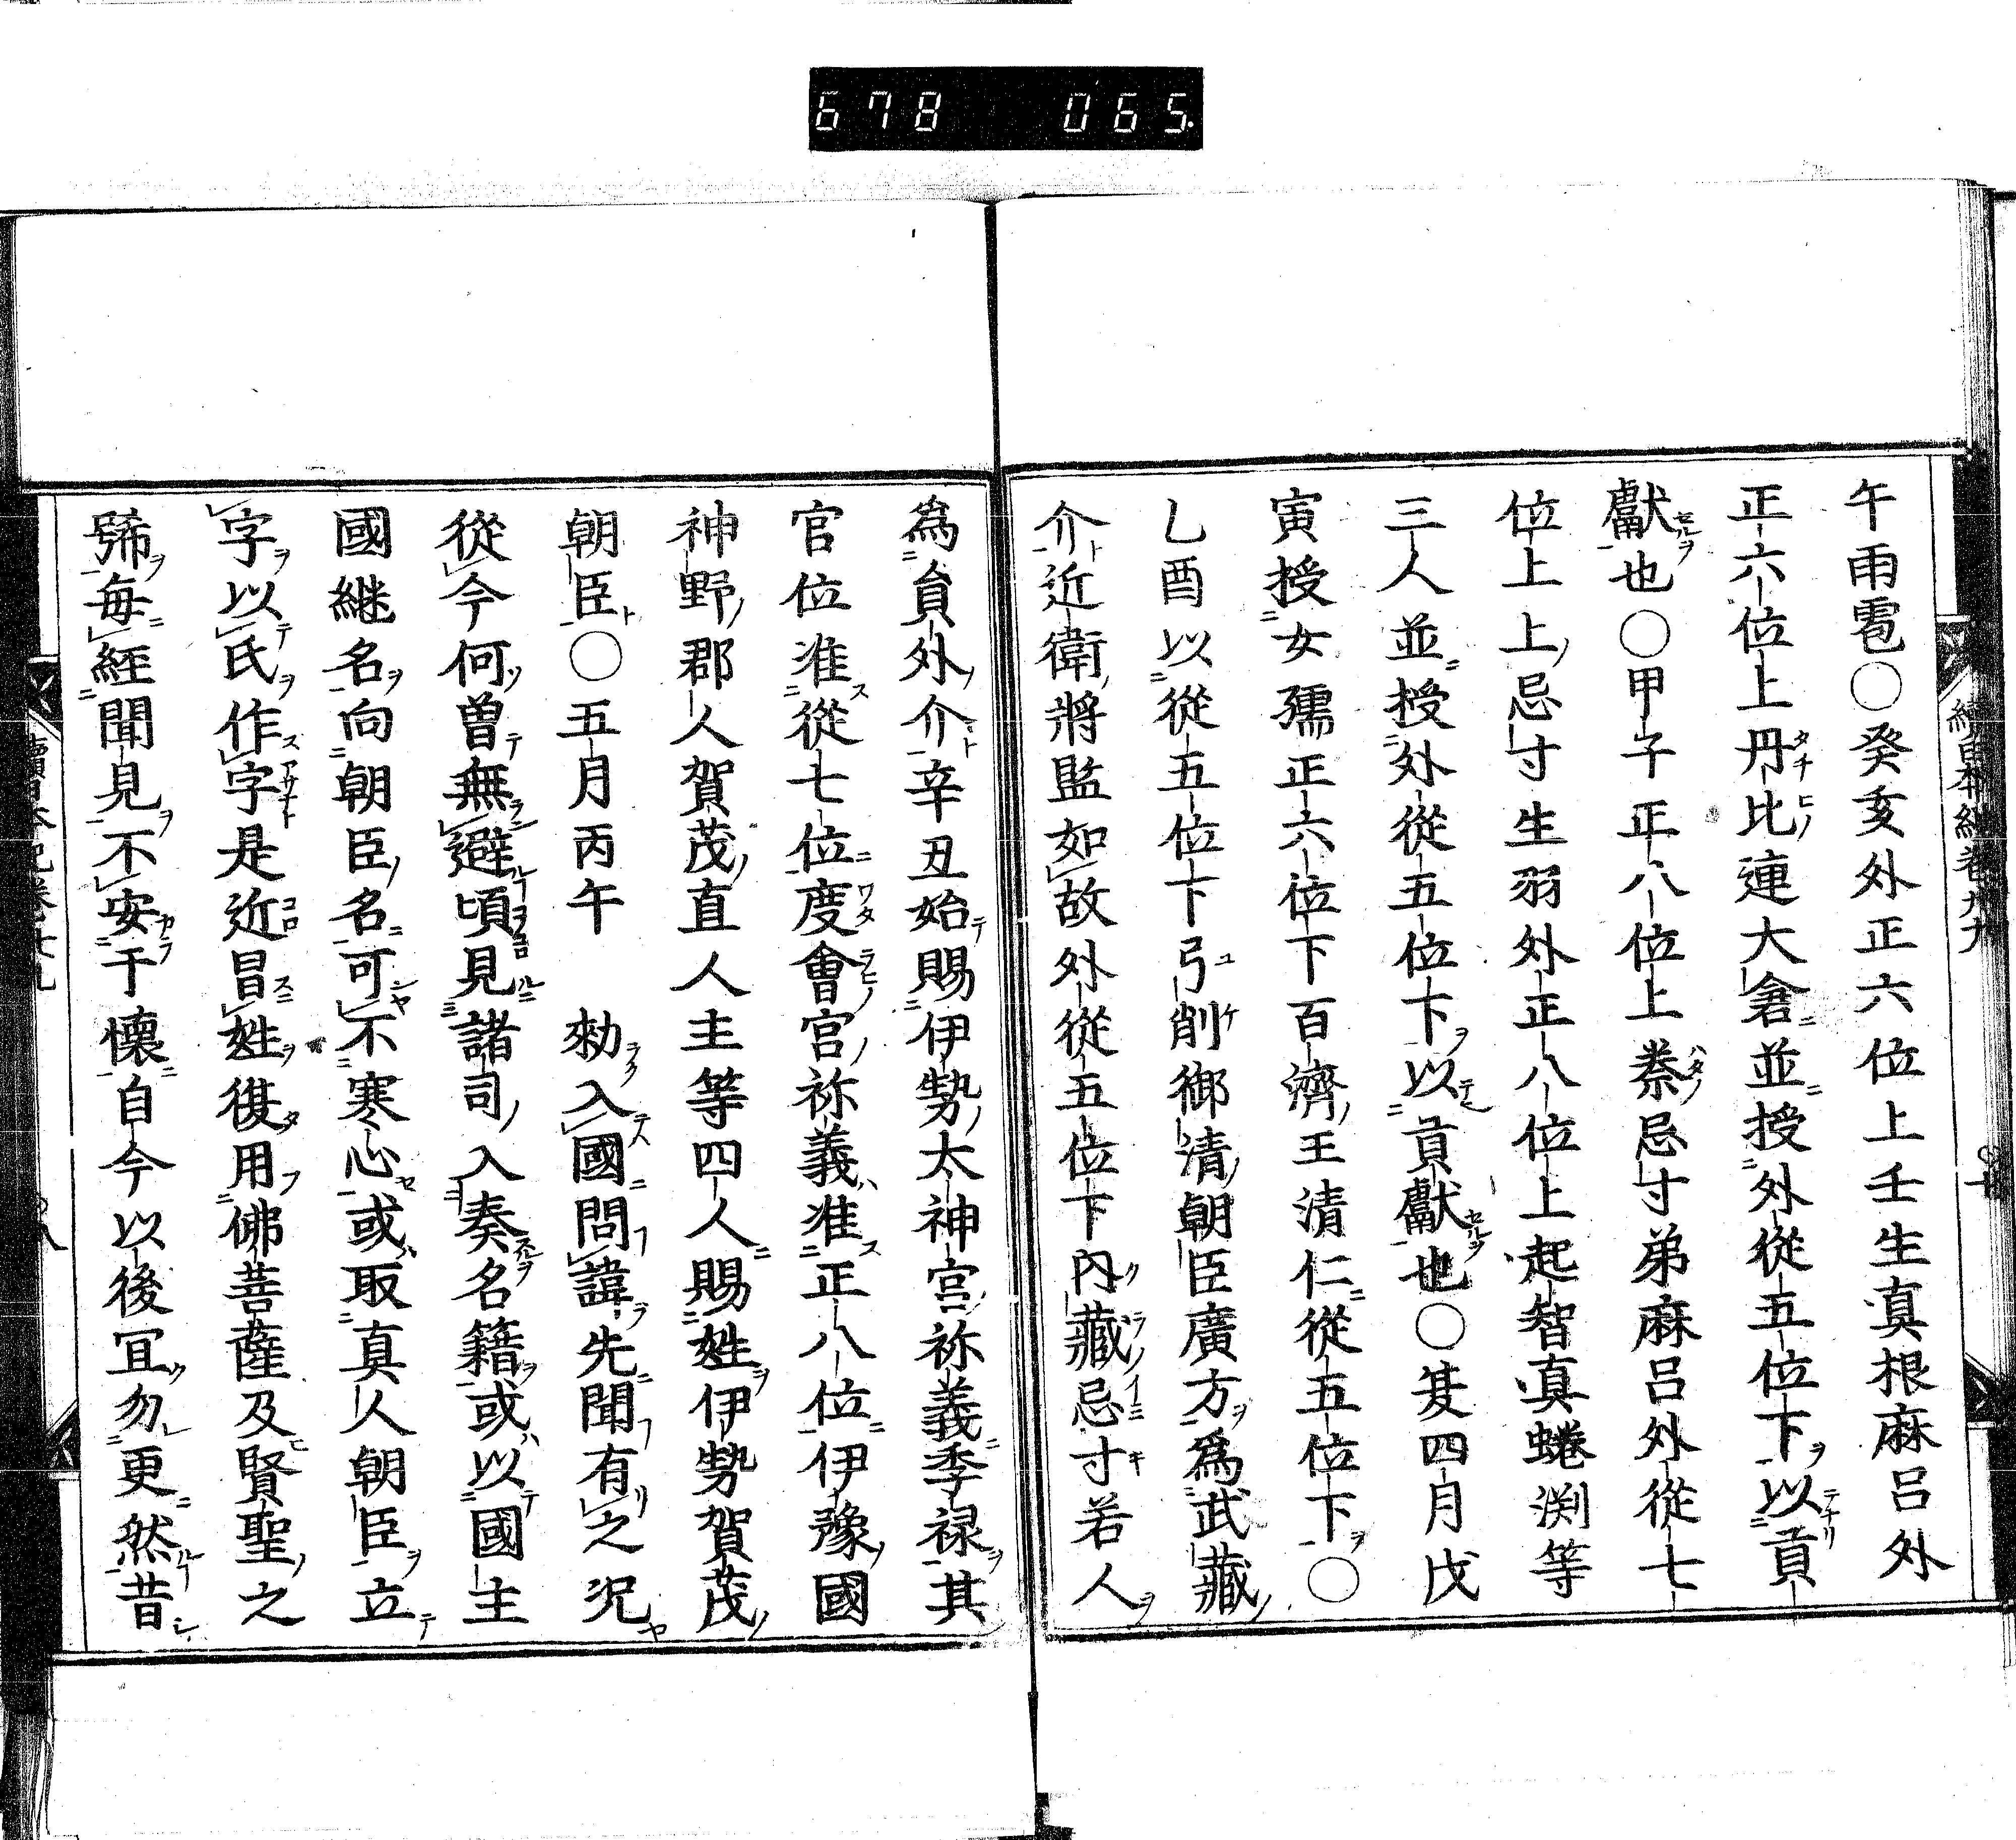 678 065
午雨雹〇癸亥外正六位上壬生真根麻呂外
正六位上丹比連大倉並授外從五位下以貢
獻也〇甲子正八位上秦忌寸弟麻呂外從七
位上上忌寸生羽外正八位上起智真蜷渕等
三人並授外從五位下以貢獻也〇夏四月戊
寅授女孺正六位下百濟王清仁從五位下〇
乙酉以從五位下弓削御清朝臣廣方爲武藏
介近衛將監如故外從五位下內藏忌寸若人
爲員外介辛丑始賜伊勢太神宮祢義季禄其
官位准從七位度會宮祢義准正八位伊豫國
神野郡人賀茂直人主等四人賜姓伊勢賀茂
朝臣〇五月丙午 勑入國問諱先聞有之况
從今何曽無避頃見諸司入奏名籍或以國主
國継名向朝臣名可不寒心或取真人朝臣立
字以氏作字是近冒姓復用佛菩薩及賢聖之
號每經聞見不安于懷自今以後冝勿更然昔